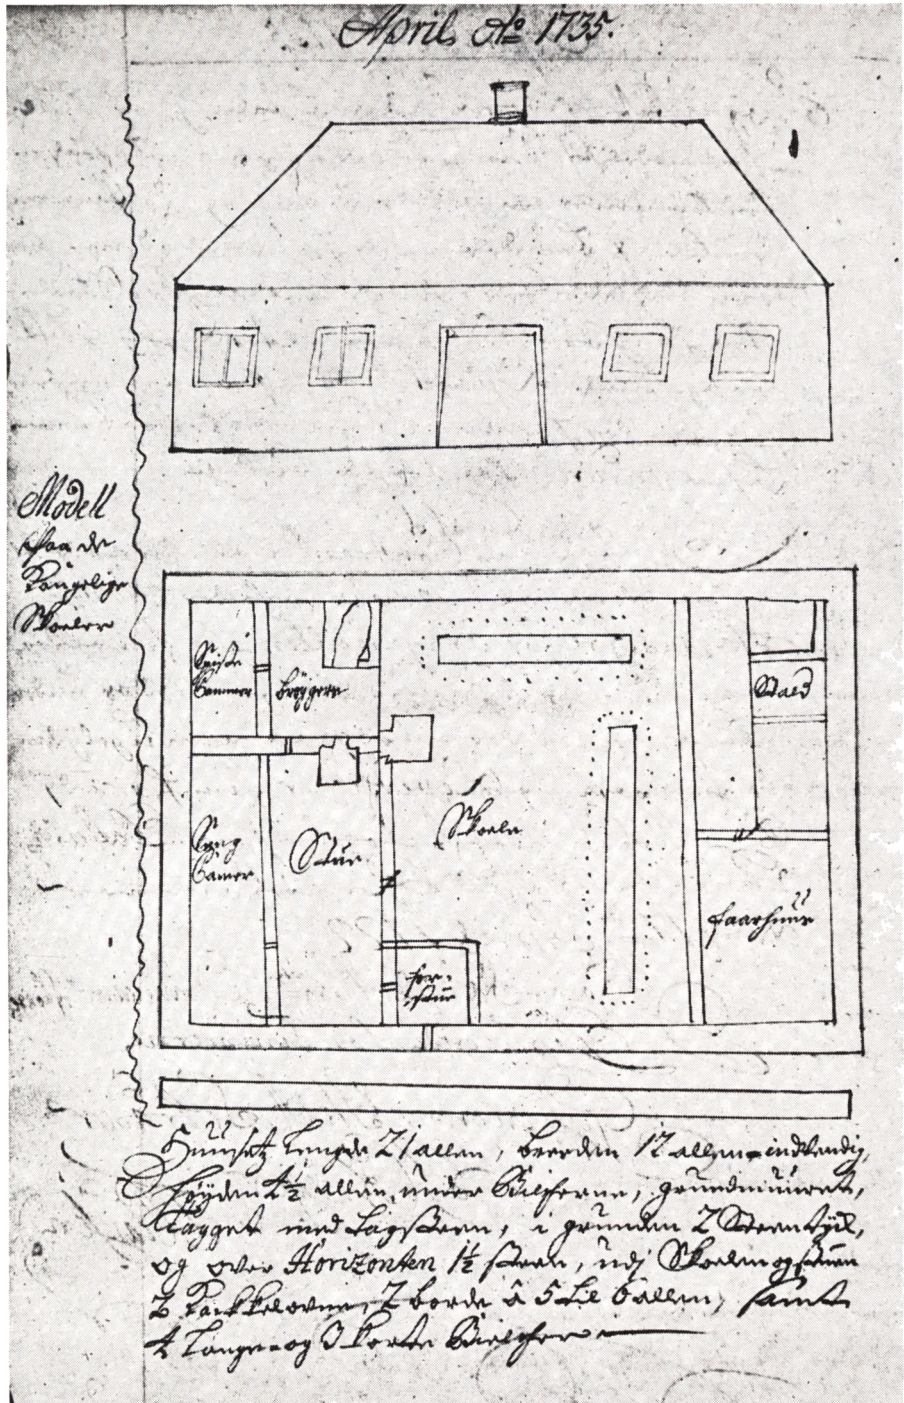 April Aō 1735.
Modell
paa de
Kongelige
Skoeler
Spise
Cammer
brÿggers
Stald
Seng
Camer
Stue
Skoele
faarhuus
for-
stue
Huusetz lengde 21 allen, breeden 12 allen indvendig,
Høÿden 4½ allen under Bielkerne, grundmuuret,
Tagget med tagsteen, i grunden 2 Steen tÿk,
og over Horizonten 1½ steen, udj Skoelen og stuen
2 Kackkelovne, 2 borde â 5 til 6 allen, samt
4 lange og 3 korte